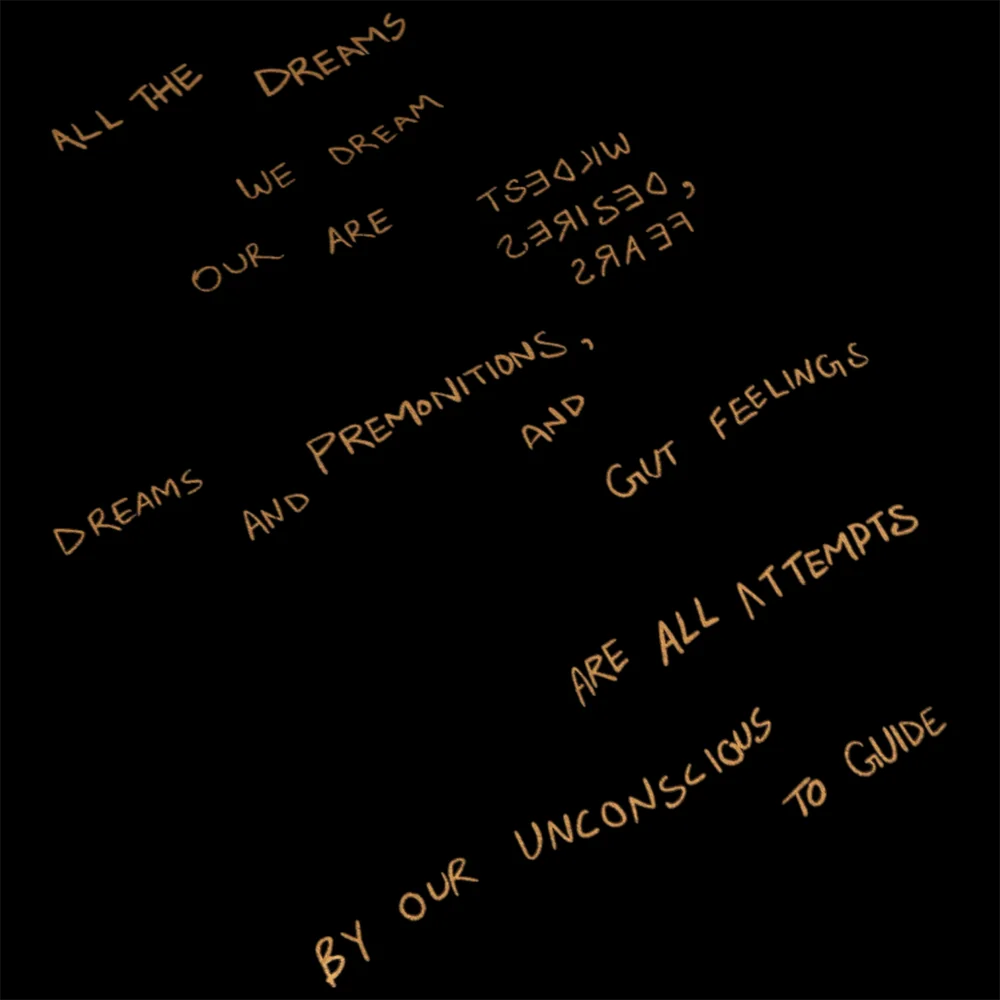 ALL THE DREAMS
WE DREAM
OUR ARE
WILDEST
DESIRES,
FEARS
DREAMS AND PREMONITIONS,
AND GUT FEELINGS
ARE ALL ATTEMPTS
BY OUR UNCONSCIOUS
TO GUIDE